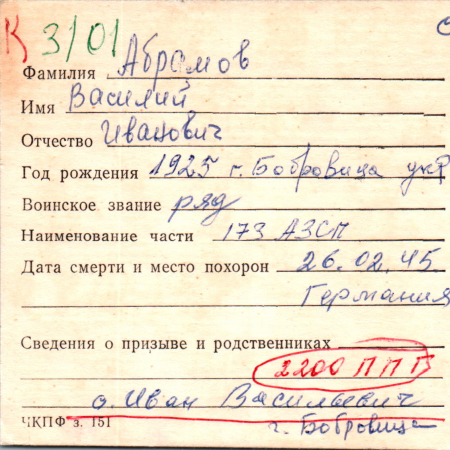 К 3/01
Фамилия Абрамов
Имя Василий
Отчество Иванович
Год рождения 1925 г. Бобровица укр
Воинское звание ряд
Наименование части 173 АЗСП
Дата смерти и место похорон 26.02.45
Германия
Сведения о призыве и родственниках
2200 ППГ
о. Иван Васильевич
ЧКПФ з. 151 г. Бобровица